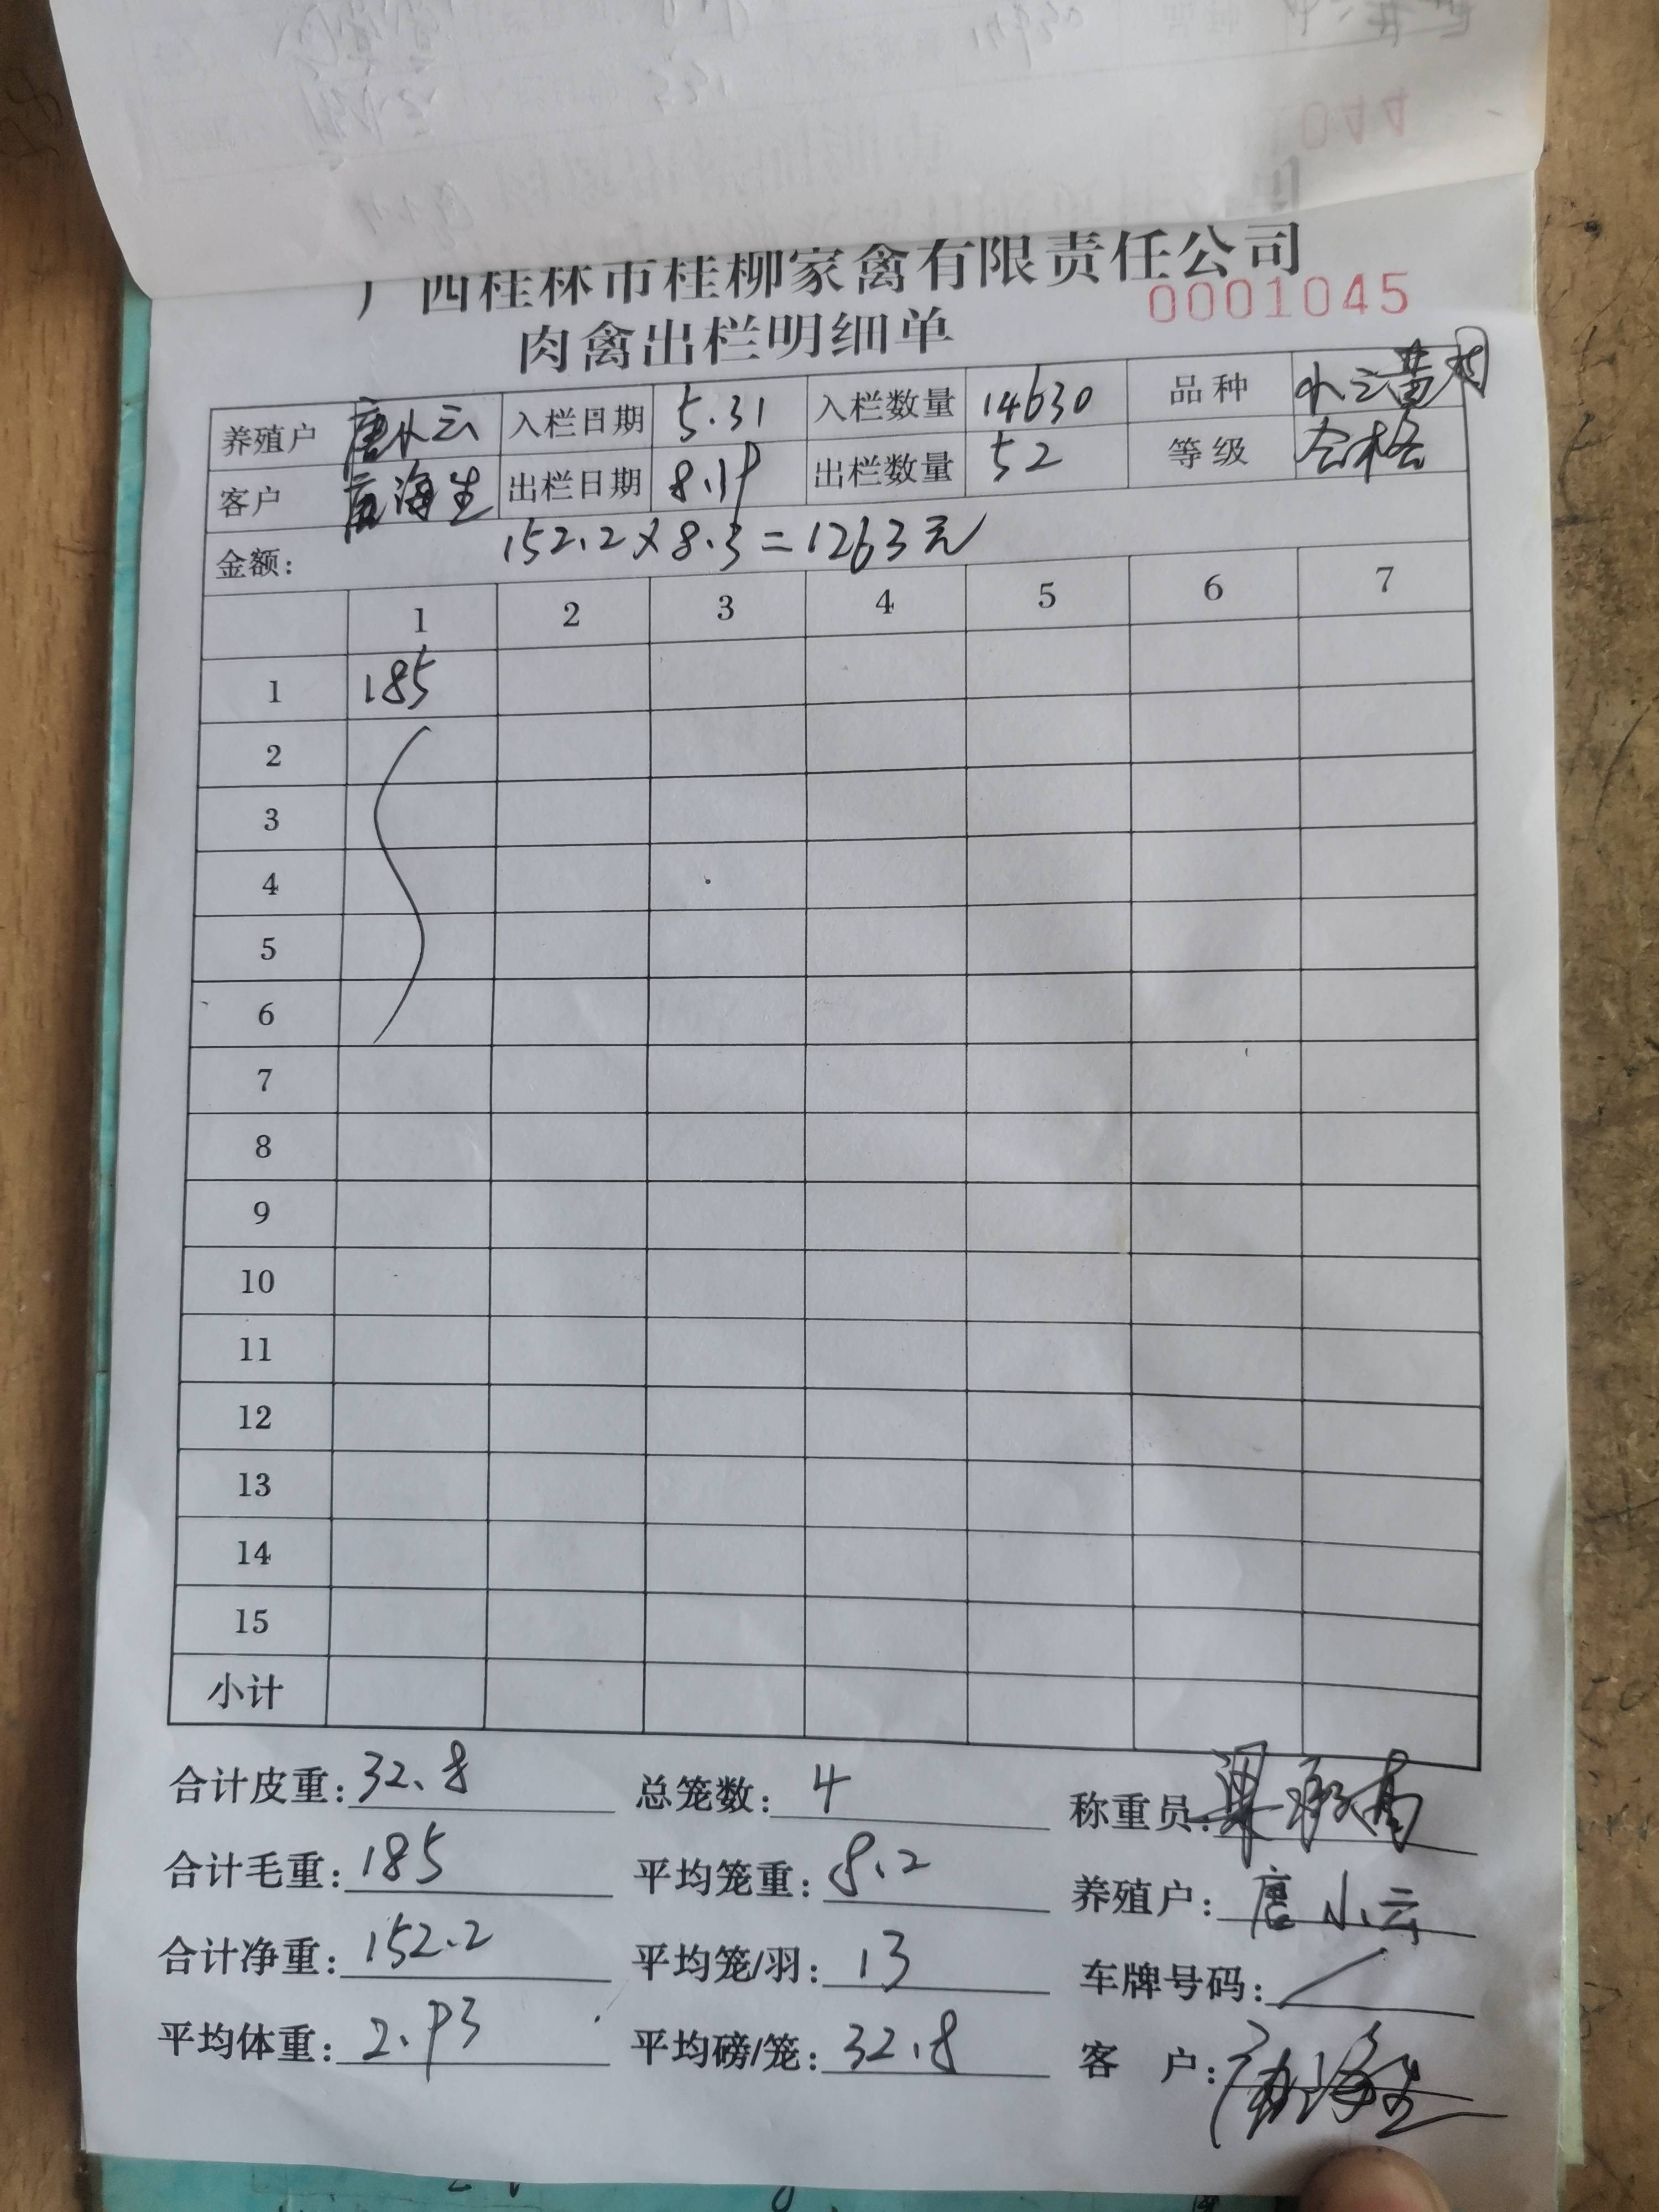 广西桂林市桂柳家禽有限责任公司
0001045
肉禽出栏明细单
养殖户 唐小云 入栏日期 5.31 入栏数量 14630 品种
客户 唐海生 出栏日期 8.19 出栏数量 52 等级 合格
金额: 152.2×8.3=1263元
1 2 3 4 5 6 7
1 185
2
3
4
5
6
7
8
9
10
11
12
13
14
15
小计
合计皮重: 32.8 总笼数: 4 称重员:
合计毛重: 185 平均笼重: 8.2 养殖户: 唐小云
合计净重: 152.2 平均笼/羽: 13 车牌号码: /
平均体重: 2.93 平均磅/笼: 32.8 客 户: 唐海生